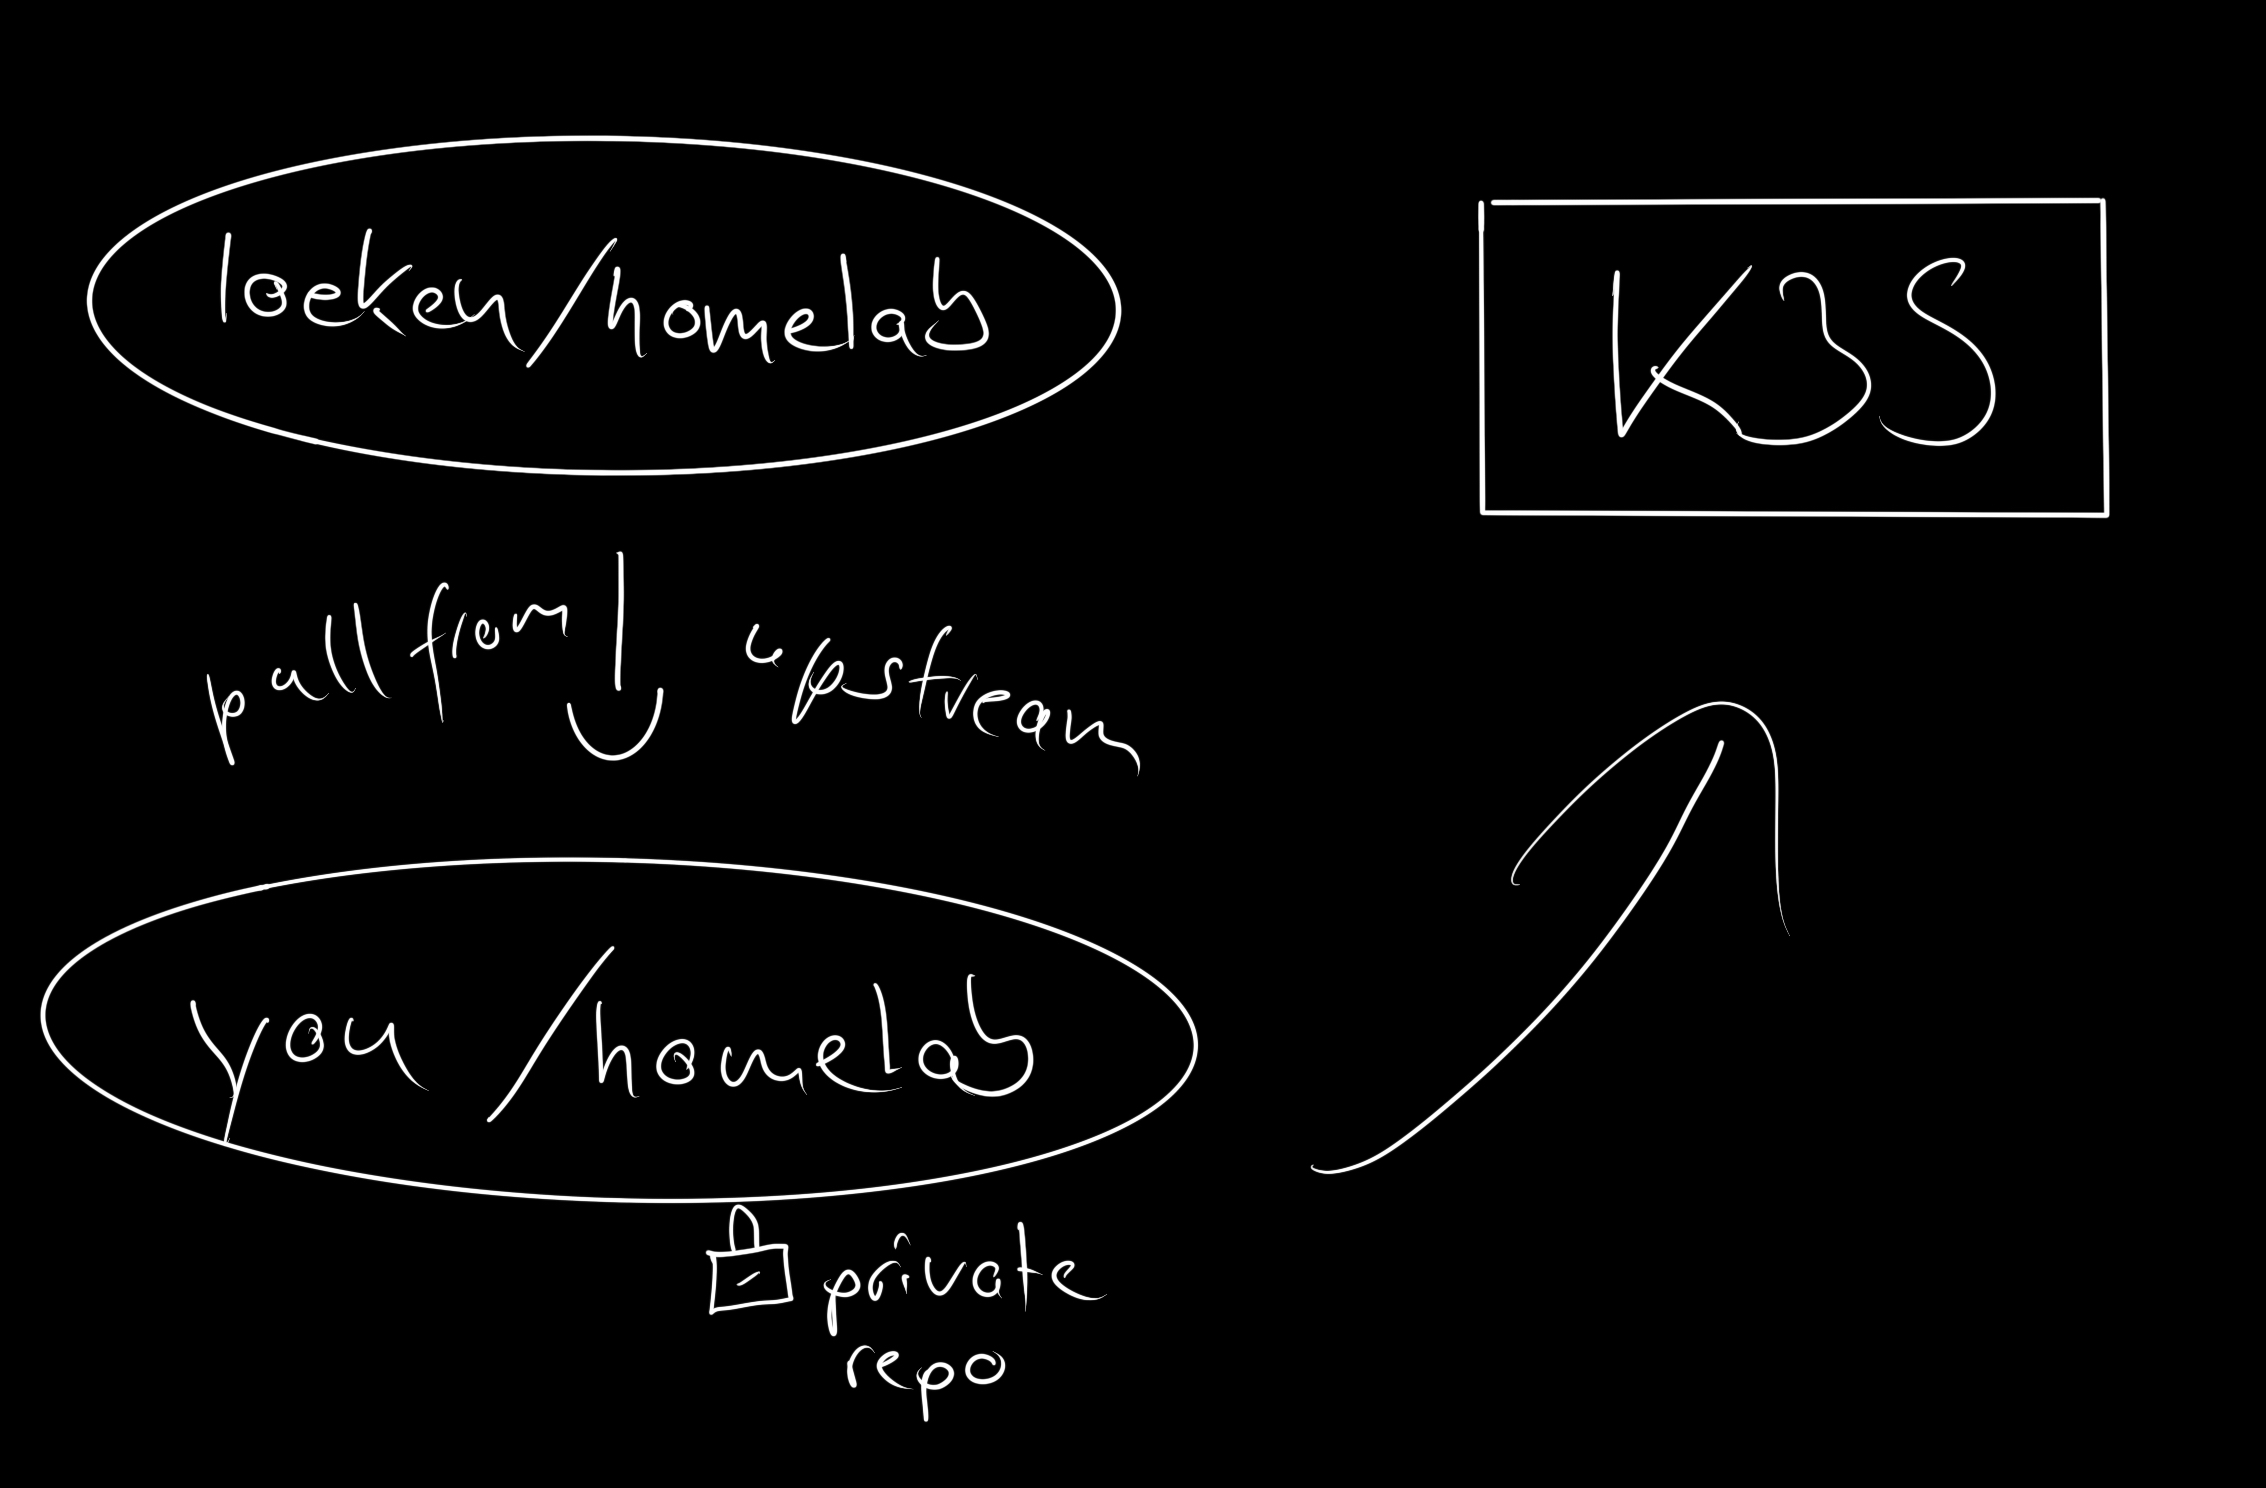 loeken/homelab
K3S
pull from upstream
you/homelab
private
repo